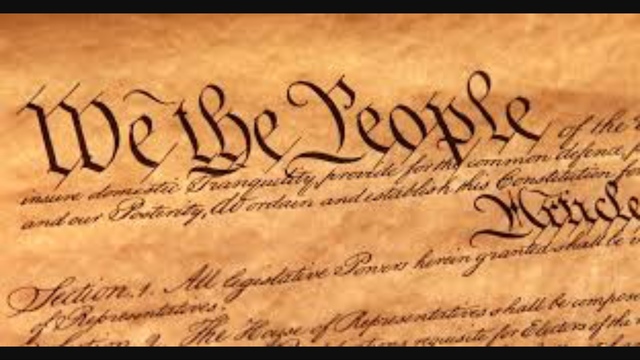 We the People of the
insure domestic Tranquility, provide for the common defence,
and our Posterity, do ordain and establish this Constitution for
Article
Section. 1. All legislative Powers herein granted shall be
of Representatives.
The House of Representatives shall be
requisite for Electors of the